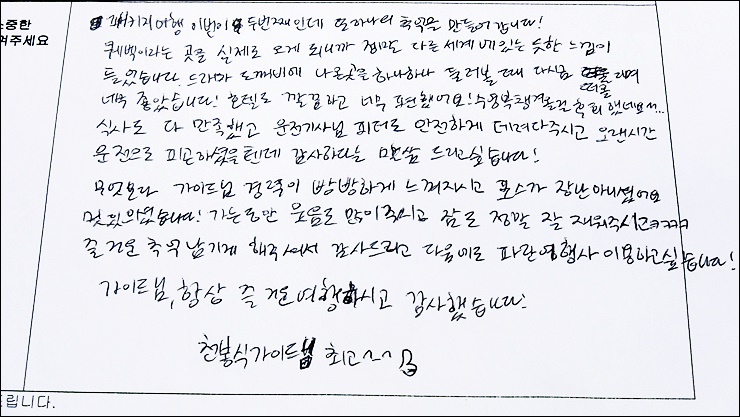 소중한
겨주세요
패키지여행 이번이 두번째인데 또하나의 추억을 만들어 갑니다!
퀘벡이라는 곳을 실제로 오게 되니까 정말 다른 세계에 있는 듯한 느낌이
들었습니다. 드라마 도깨비에 나온곳을 하나하나 둘러볼때 다시금 떠올라며
너무 좋았습니다! 호텔도 깔끔하고 너무 편했어요! 수영복챙겨올걸 후회했네요ㅠㅠ...
식사도 다 만족했고 운전기사님 피터도 안전하게 데려다주시고 오랜시간
운전으로 피곤하셨을텐데 감사하다는 말씀 드리고싶습니다!
무엇보다 가이드님 경력이 빵빵하게 느껴지시고 포스가 장난아니셨어요
멋있으셨습니다! 가는동안 웃음도 많이주시고 잠도 정말 잘 재워주시고ㅋㅋㅋㅋ
즐거운 추억남기게 해주셔서 감사드리고 다음에도 파란여행사 이용하고싶습니다!
가이드님, 항상 즐거운여행하시고 감사했습니다!
천봉식가이드님 최고~~
드립니다.